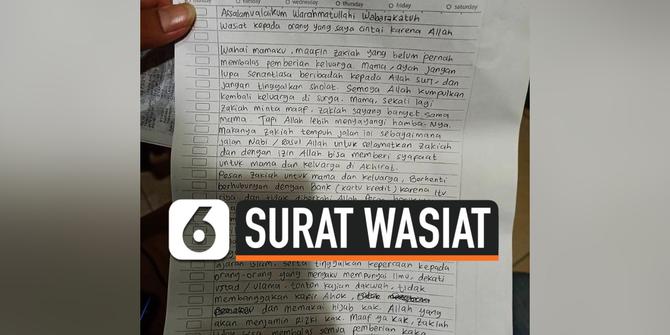 monday tuesday wednesday thursday friday saturday
Assalamualaikum Warahmatullahi Wabarakatuh
Wasiat kepada orang yang saya cintai karena Allah
Wahai mamaku, maafin zakiah yang belum pernah
membalas pemberian keluarga. Mama, ayah jangan
lupa senantiasa beribadah kepada Allah SWT, dan
jangan tinggalkan sholat. Semoga Allah kumpulkan
kembali keluarga di surga. Mama, sekali lagi
zakiah minta maaf. zakiah sayang banget sama
mama. Tapi Allah lebih menyayangi hamba-Nya.
Makanya zakiah tempuh jalan ini sebagaimana
jalan Nabi / Rasul Allah untuk selamatkan zakiah
dan dengan izin Allah bisa memberi syafaat
untuk mama dan keluarga di Akhirat.
Pesan zakiah untuk mama dan keluarga, Berhenti
berhubungan dengan bank (kartu kredit) karena itu
riba dan tidak diberkahi Allah. Pesan
6 SURAT WASIAT
Ajaran Islam, serta tinggalkan kepercaan kepada
orang-orang yang mengaku mempunyai Ilmu, dekati
ustad / ulama, tonton kajian dakwah, tidak
membanggakan kafir Ahok,
dan memakai hijab kak. Allah yang
akan menjamin rizki kak. Maaf ya kak, zakiah
membalas semua pemberian kaka